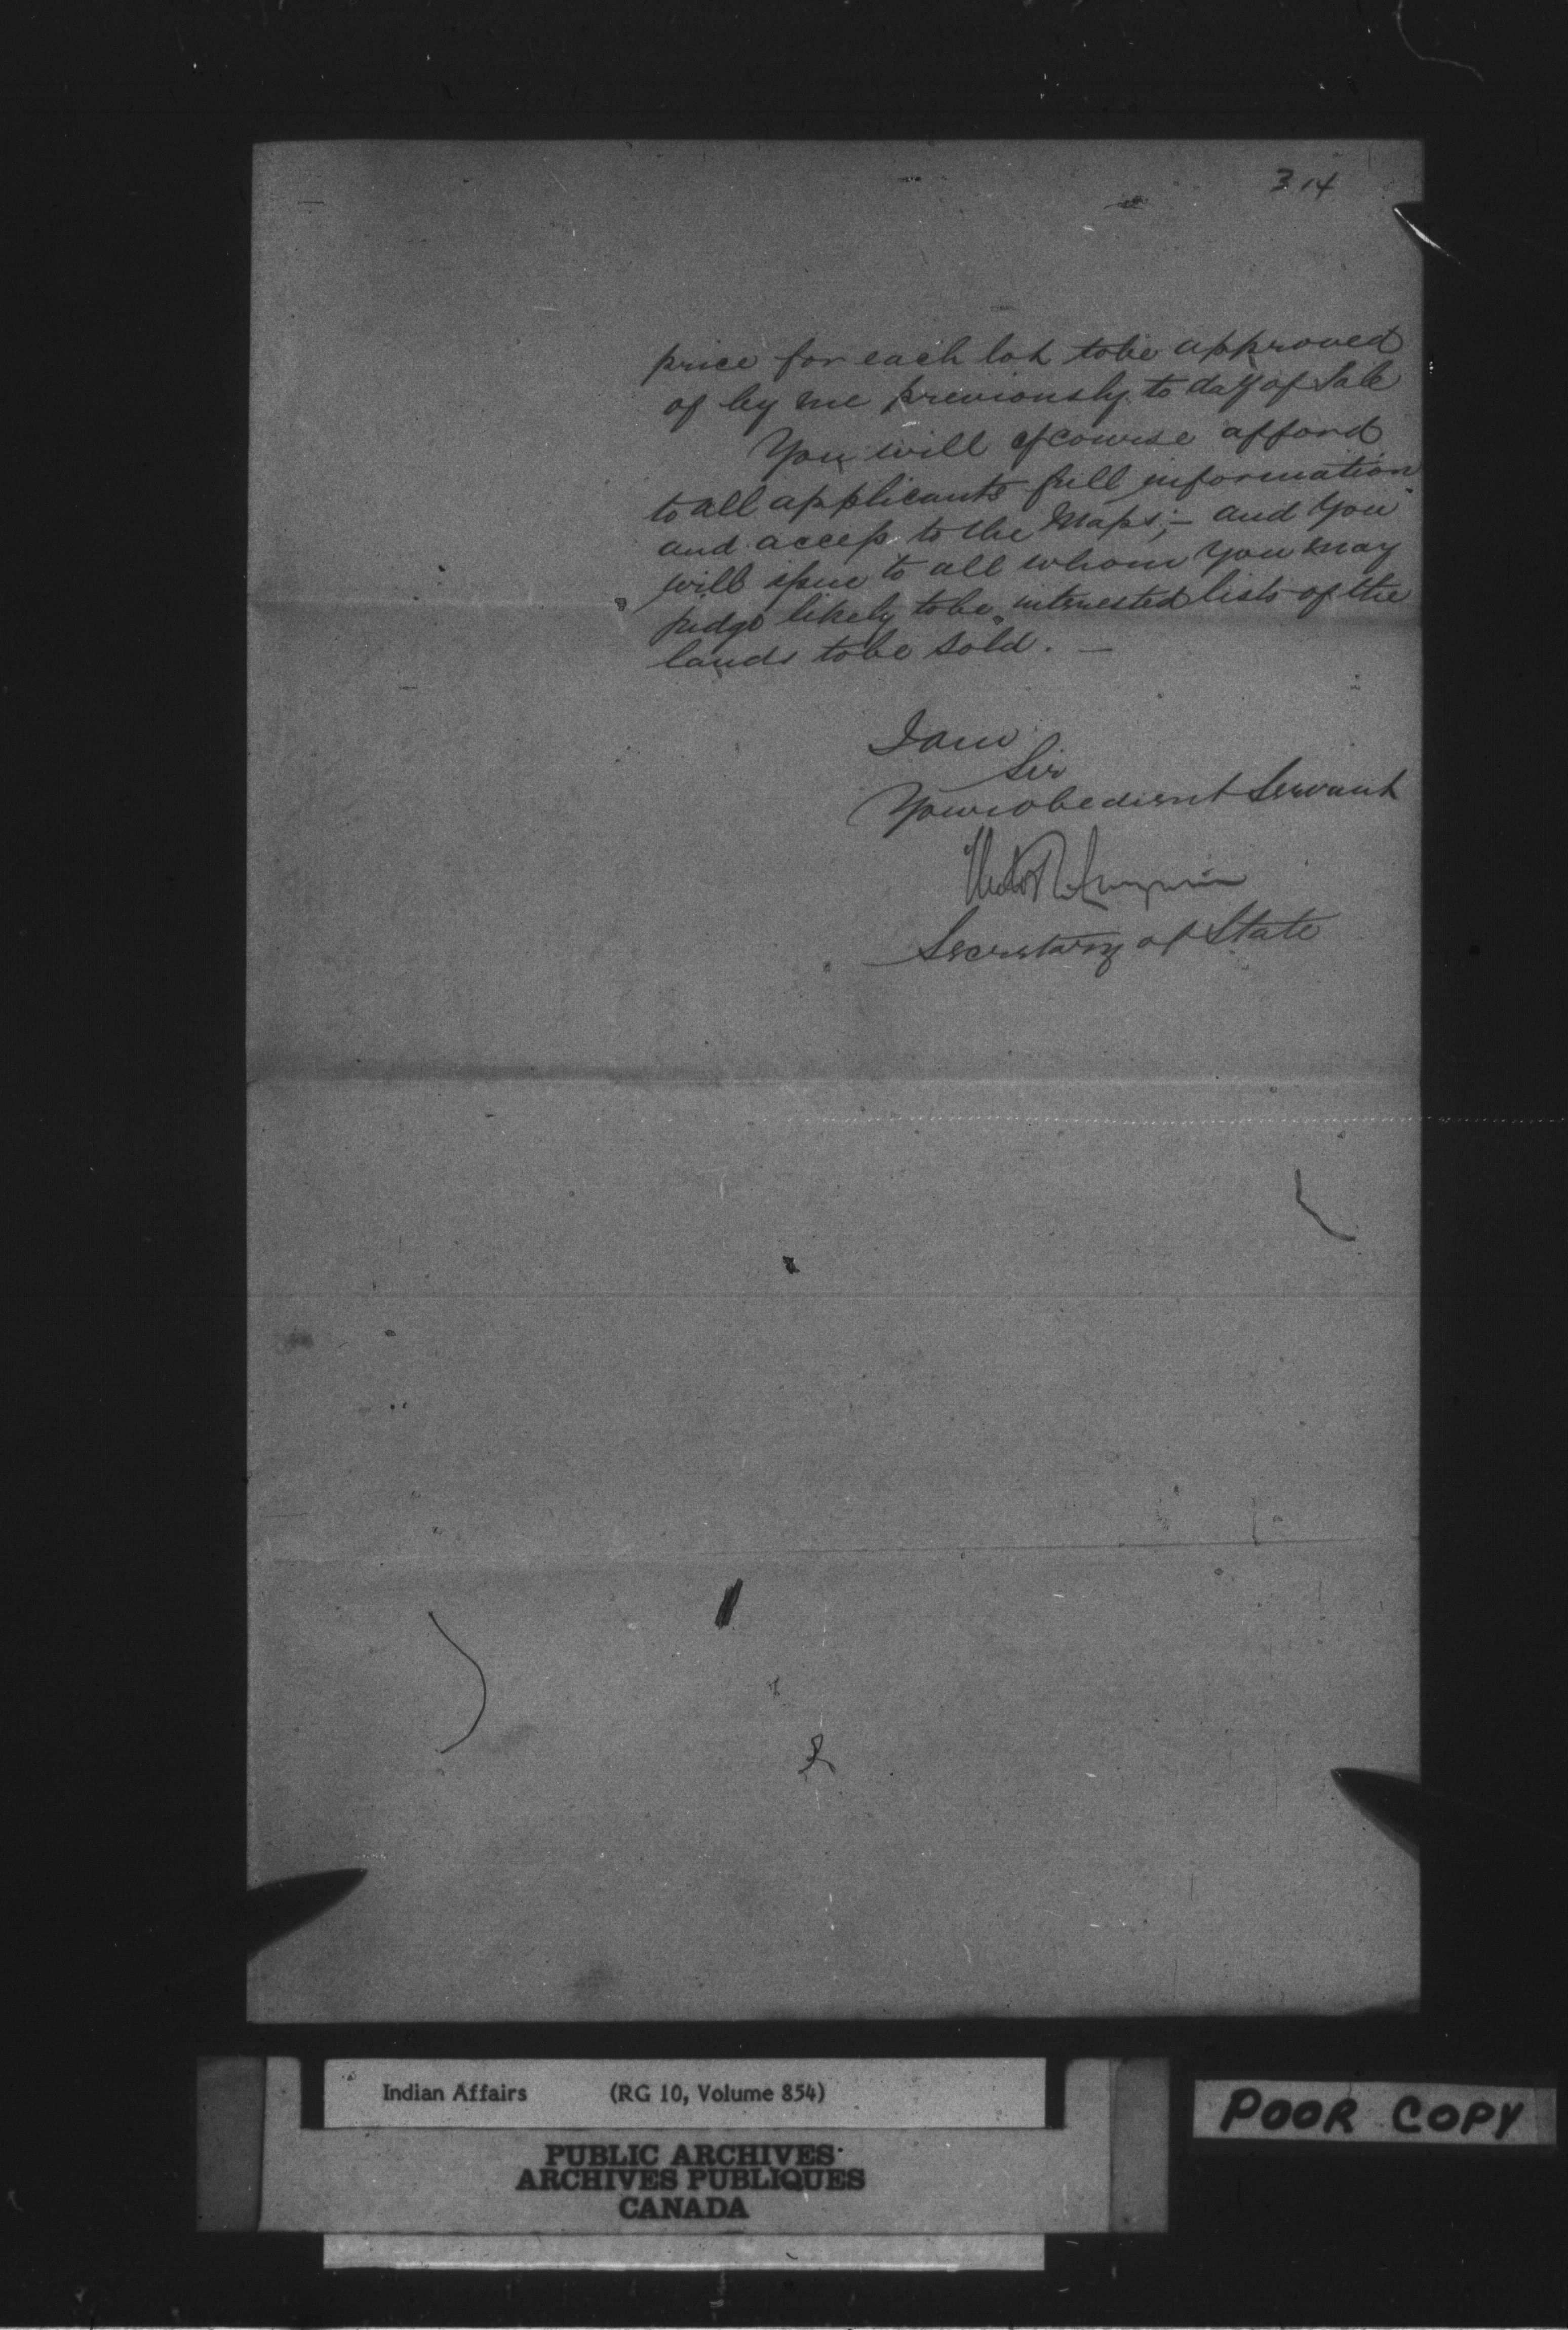 314
price for each lot to be approved
of by me previously to day of Sale
You will of course afford
to all applicants full information
and access to the Maps; - and You
will issue to all whom You may
judge likely to be interested lists of the
lands to be sold. -
I am
Sir
Your obedient Servant
Secretary of State
Indian Affairs (RG 10, Volume 854)
POOR COPY
PUBLIC ARCHIVES
ARCHIVES PUBLIQUES
CANADA